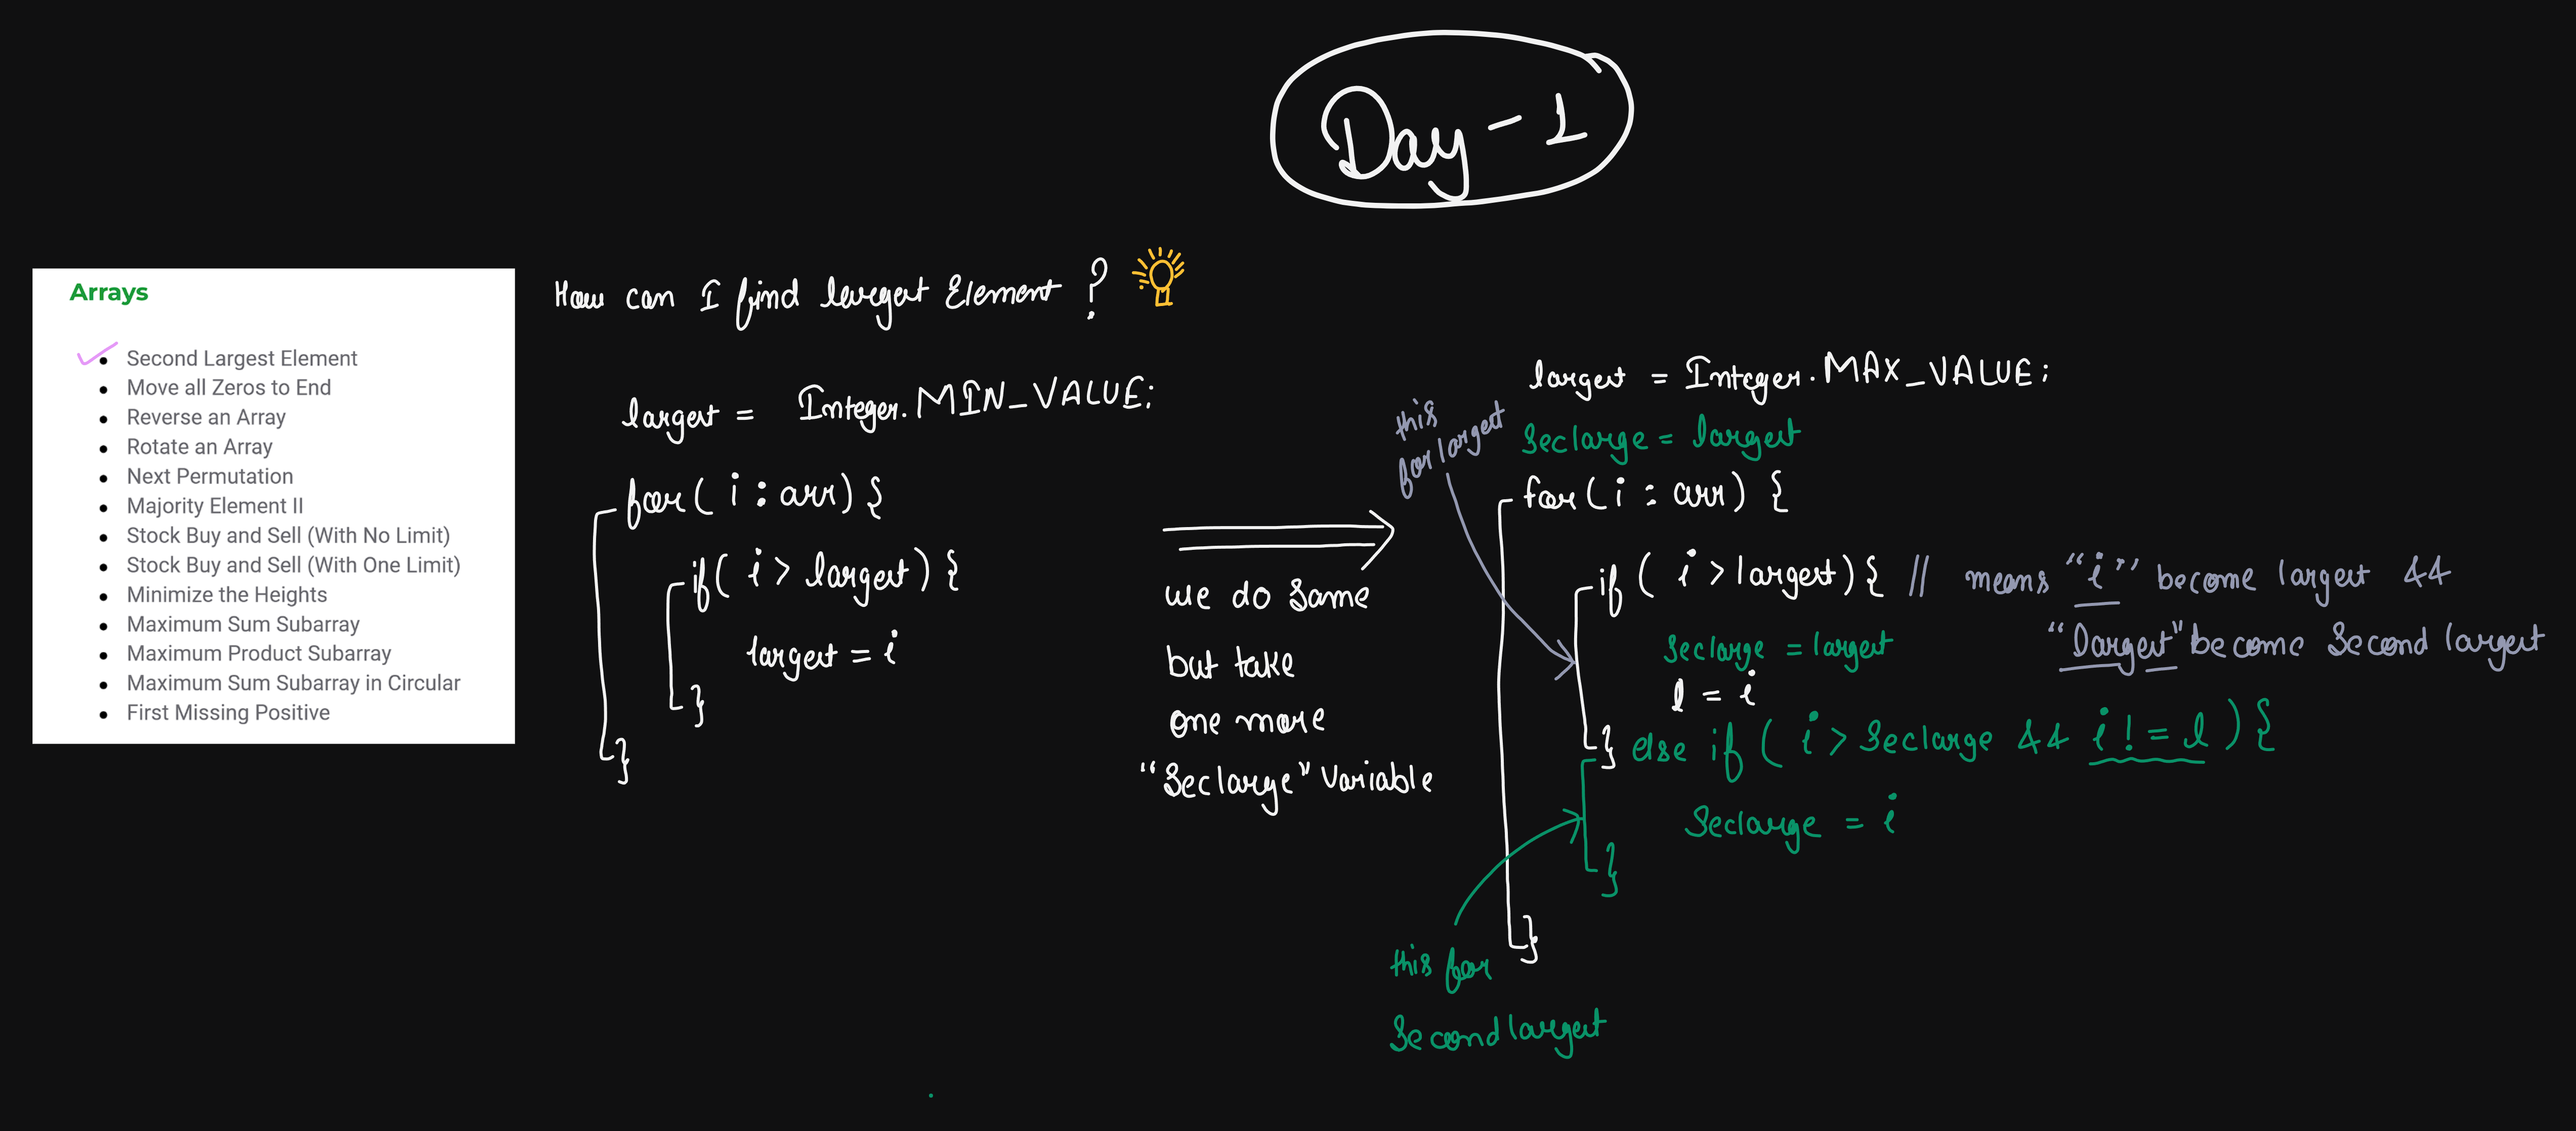 Day - 1
Arrays
Second Largest Element
Move all Zeros to End
Reverse an Array
Rotate an Array
Next Permutation
Majority Element II
Stock Buy and Sell (With No Limit)
Stock Buy and Sell (With One Limit)
Minimize the Heights
Maximum Sum Subarray
Maximum Product Subarray
Maximum Sum Subarray in Circular
First Missing Positive
How can I find largest Element ?
largest = Integer.MIN_VALUE;
for( i : arr) {
if( i > largest) {
largest = i
}
}
we do same
but take
one more
"Seclarge" Variable
largest = Integer.MAX_VALUE;
Seclarge = largest
this
for largest
for( i : arr) {
if ( i > largest) { // means "i" become largest &&
"Largest" become Second largest
Seclarge = largest
l = i
} else if ( i > Seclarge && i != l ) {
Seclarge = i
}
}
this for
Second largest